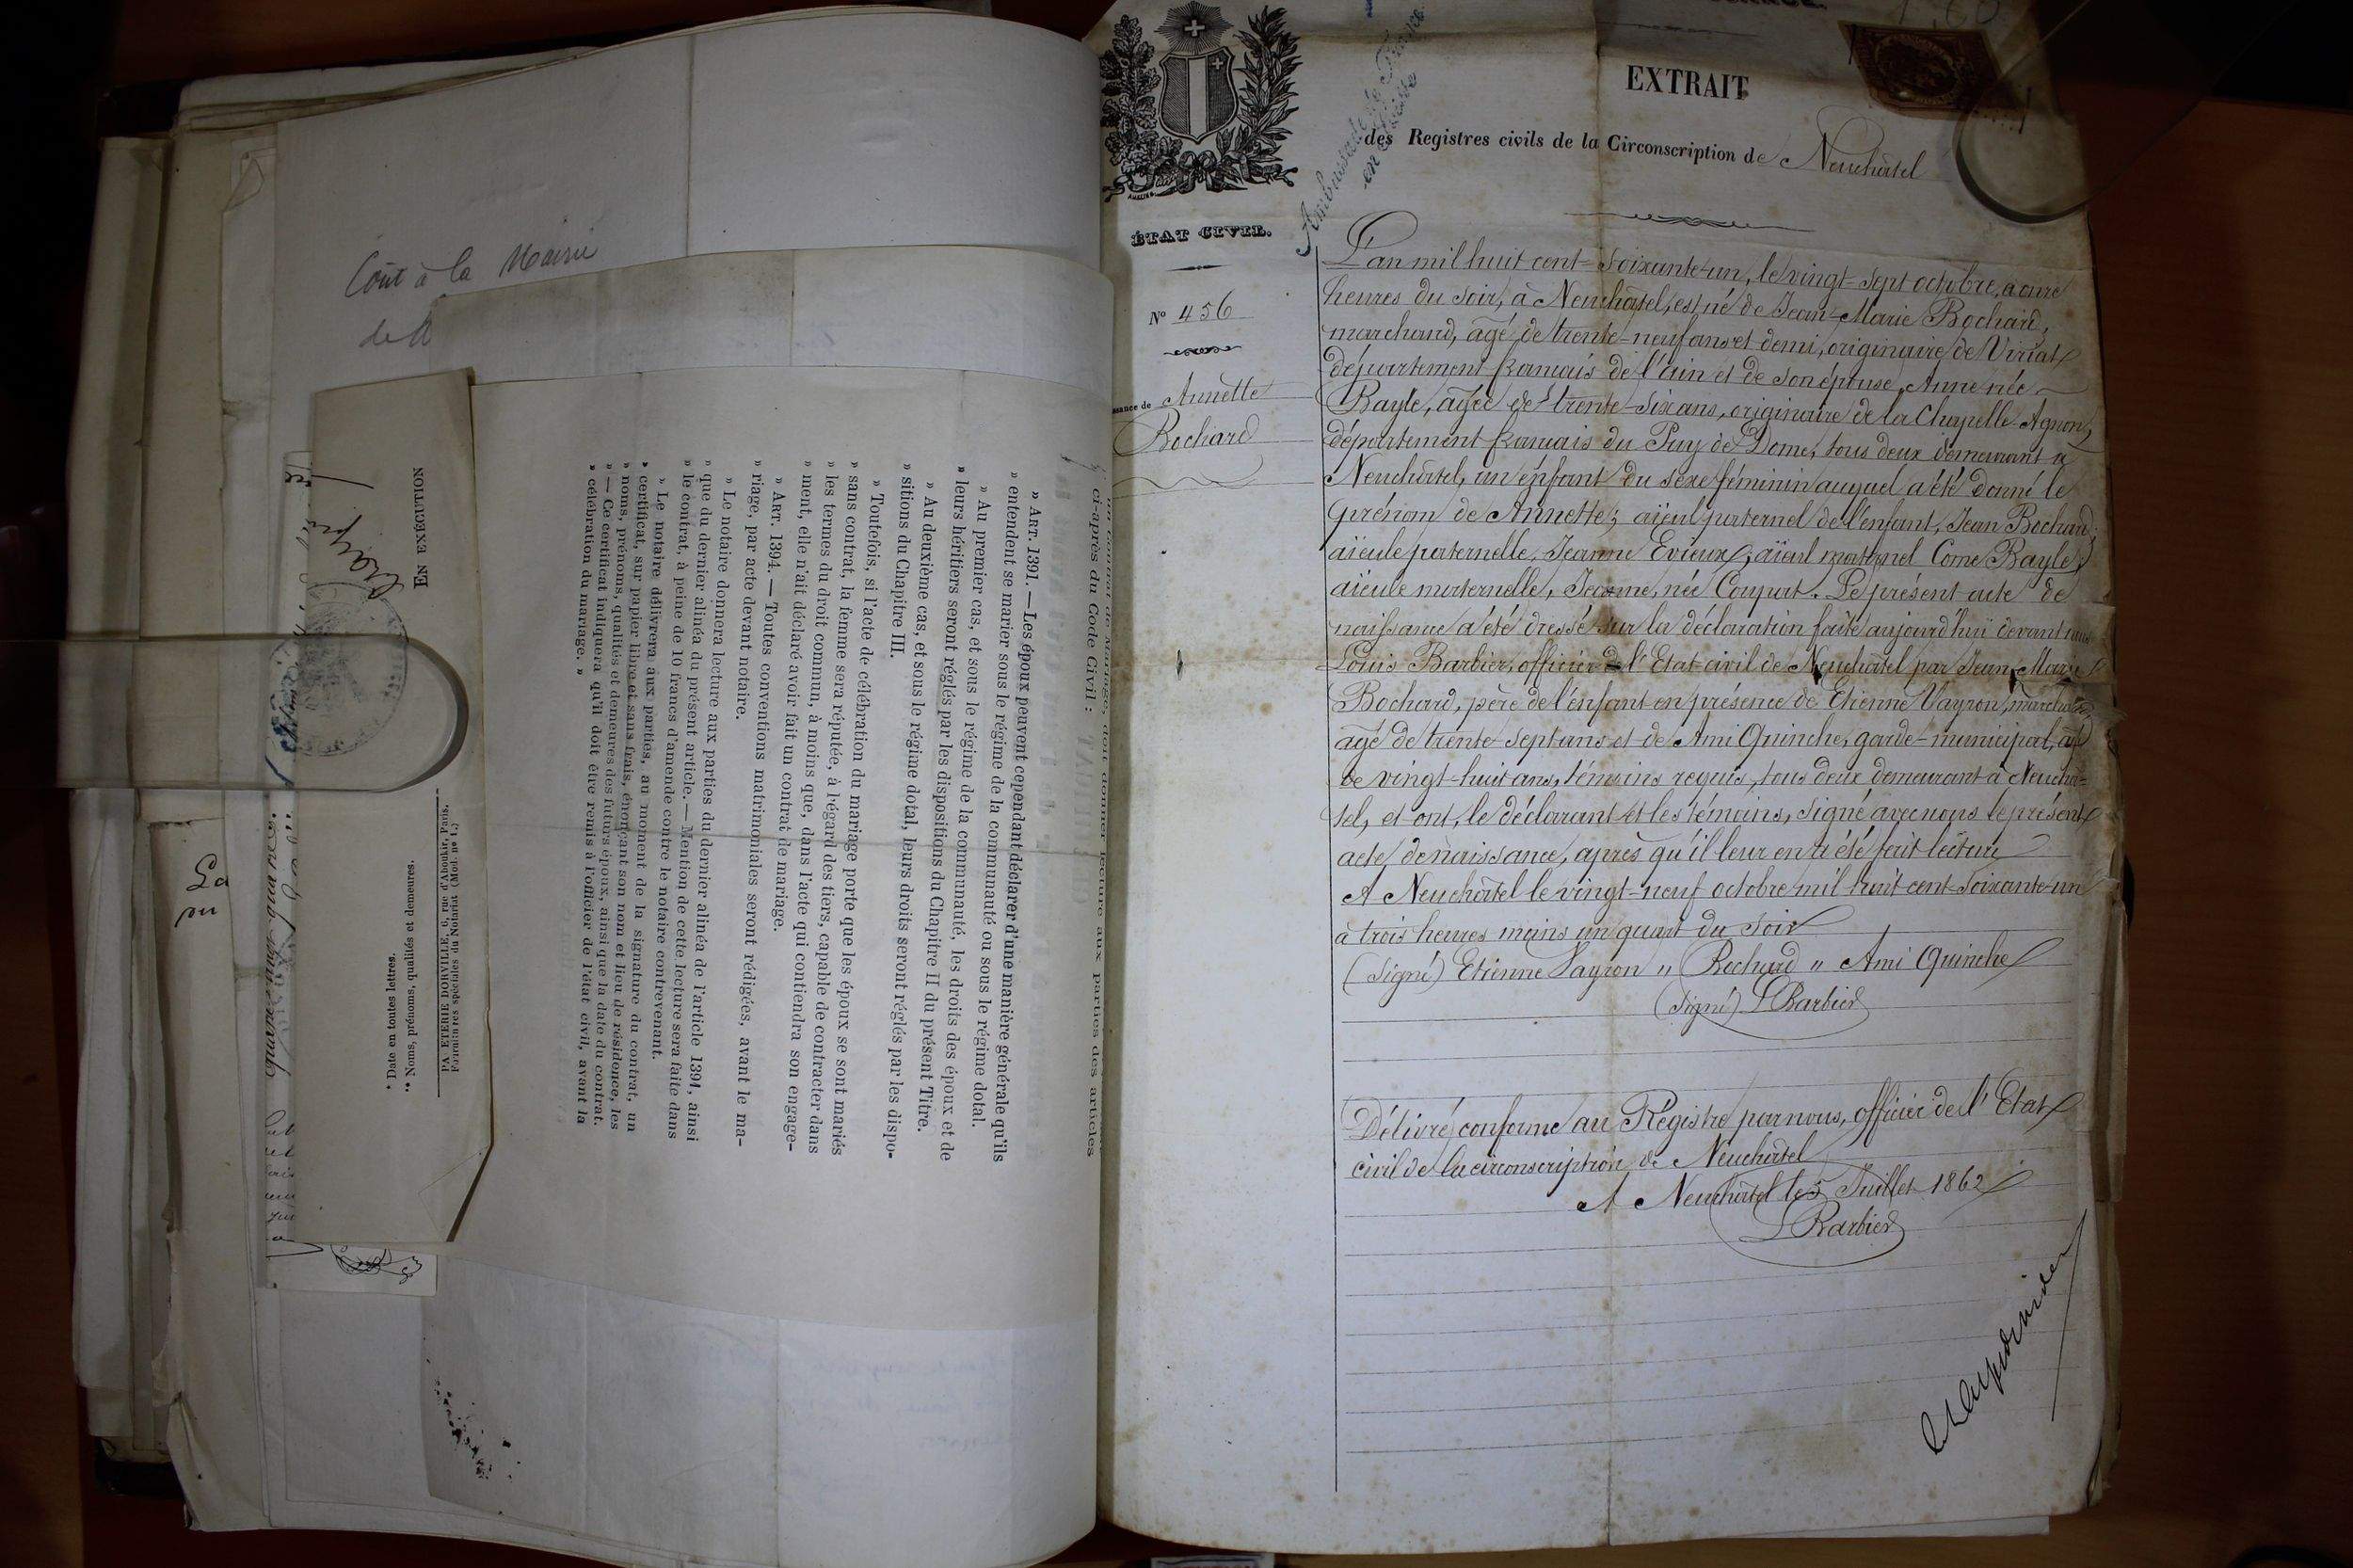 Coût à la Mairie
de
La
EN EXÉCUTION
* Date en toutes lettres.
** Noms, prénoms, qualités et demeures.
PAPETERIE DORVILLE, 6, rue d'Aboukir, Paris.
Fournitures spéciales du Notariat (Mod. no 1.)
un contrat de Mariage, doit donner lecture aux parties des articles
ci-après du Code Civil :
» ART. 1391. — Les époux peuvent cependant déclarer d'une manière générale qu'ils
» entendent se marier sous le régime de la communauté ou sous le régime dotal.
» Au premier cas, et sous le régime de la communauté, les droits des époux et de
» leurs héritiers seront réglés par les dispositions du Chapitre II du présent Titre.
» Au deuxième cas, et sous le régime dotal, leurs droits seront réglés par les dispo-
» sitions du Chapitre III.
» Toutefois, si l'acte de célébration du mariage porte que les époux se sont mariés
» sans contrat, la femme sera réputée, à l'égard des tiers, capable de contracter dans
» les termes du droit commun, à moins que, dans l'acte qui contiendra son engage-
» ment, elle n'ait déclaré avoir fait un contrat de mariage.
» ART. 1394. — Toutes conventions matrimoniales seront rédigées, avant le ma-
» riage, par acte devant notaire.
» Le notaire donnera lecture aux parties du dernier alinéa de l'article 1391, ainsi
» que du dernier alinéa du présent article. — Mention de cette lecture sera faite dans
» le contrat, à peine de 10 francs d'amende contre le notaire contrevenant.
» Le notaire délivrera aux parties, au moment de la signature du contrat, un
» certificat, sur papier libre et sans frais, énonçant son nom et lieu de résidence, les
» noms, prénoms, qualités et demeures des futurs époux, ainsi que la date du contrat.
» — Ce certificat indiquera qu'il doit être remis à l'officier de l'état civil, avant la
» célébration du mariage. »
Ambassade de France
en Suisse
EXTRAIT
des Registres civils de la Circonscription de Neuchâtel
ÉTAT CIVIL.
No 456
ssance de Annette
Bochard
L'an mil huit cent soixante-un, le vingt-sept octobre, à onze
heures du soir, à Neuchâtel, est né de Jean-Marie Bochard,
marchand, agé de trente-neuf ans et demi, originaire de Viriat
département français de l'Ain et de son épouse, Anne née
Bayle, agée de trente-six ans, originaire de la Chapelle-Agnon,
département français du Puy de Dome, tous deux demeurant à
Neuchâtel, un enfant du sexe féminin auquel a été donné le
prénom de Annette; aïeul paternel de l'enfant, Jean Bochard;
aïeule paternelle, Jeanne Evieux; aïeul maternel Come Bayle;
aïeule maternelle, Jeanne, née Coupat. Le présent acte de
naissance a été dressé sur la déclaration faite aujourd'hui devant nous
Louis Barbier, officier de l'Etat-civil de Neuchâtel par Jean Marie
Bochard, père de l'enfant en présence de Etienne Vayron, marchand,
agé de trente-sept ans et de Ami Quinche, garde-municipal, agé
de vingt-huit ans, témoins requis, tous deux demeurant à Neuchâ-
tel, et ont, le déclarant et les témoins, signé avec nous le présent
acte de naissance, après qu'il leur en a été fait lecture
A Neuchâtel le vingt-neuf octobre mil huit cent soixante-un
à trois heures moins un quart du soir
(signé) Etienne Vayron " Bochard " Ami Quinche
(signé) L Barbier
Délivré conforme au Registre par nous, officier de l'Etat
civil de la circonscription de Neuchâtel
A Neuchâtel le 5 Juillet 1862
L Barbier